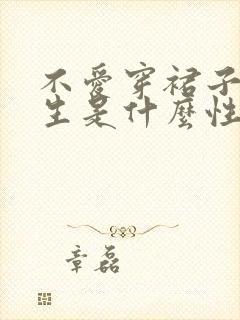 不愛穿裙子
生是什麼性
章磊